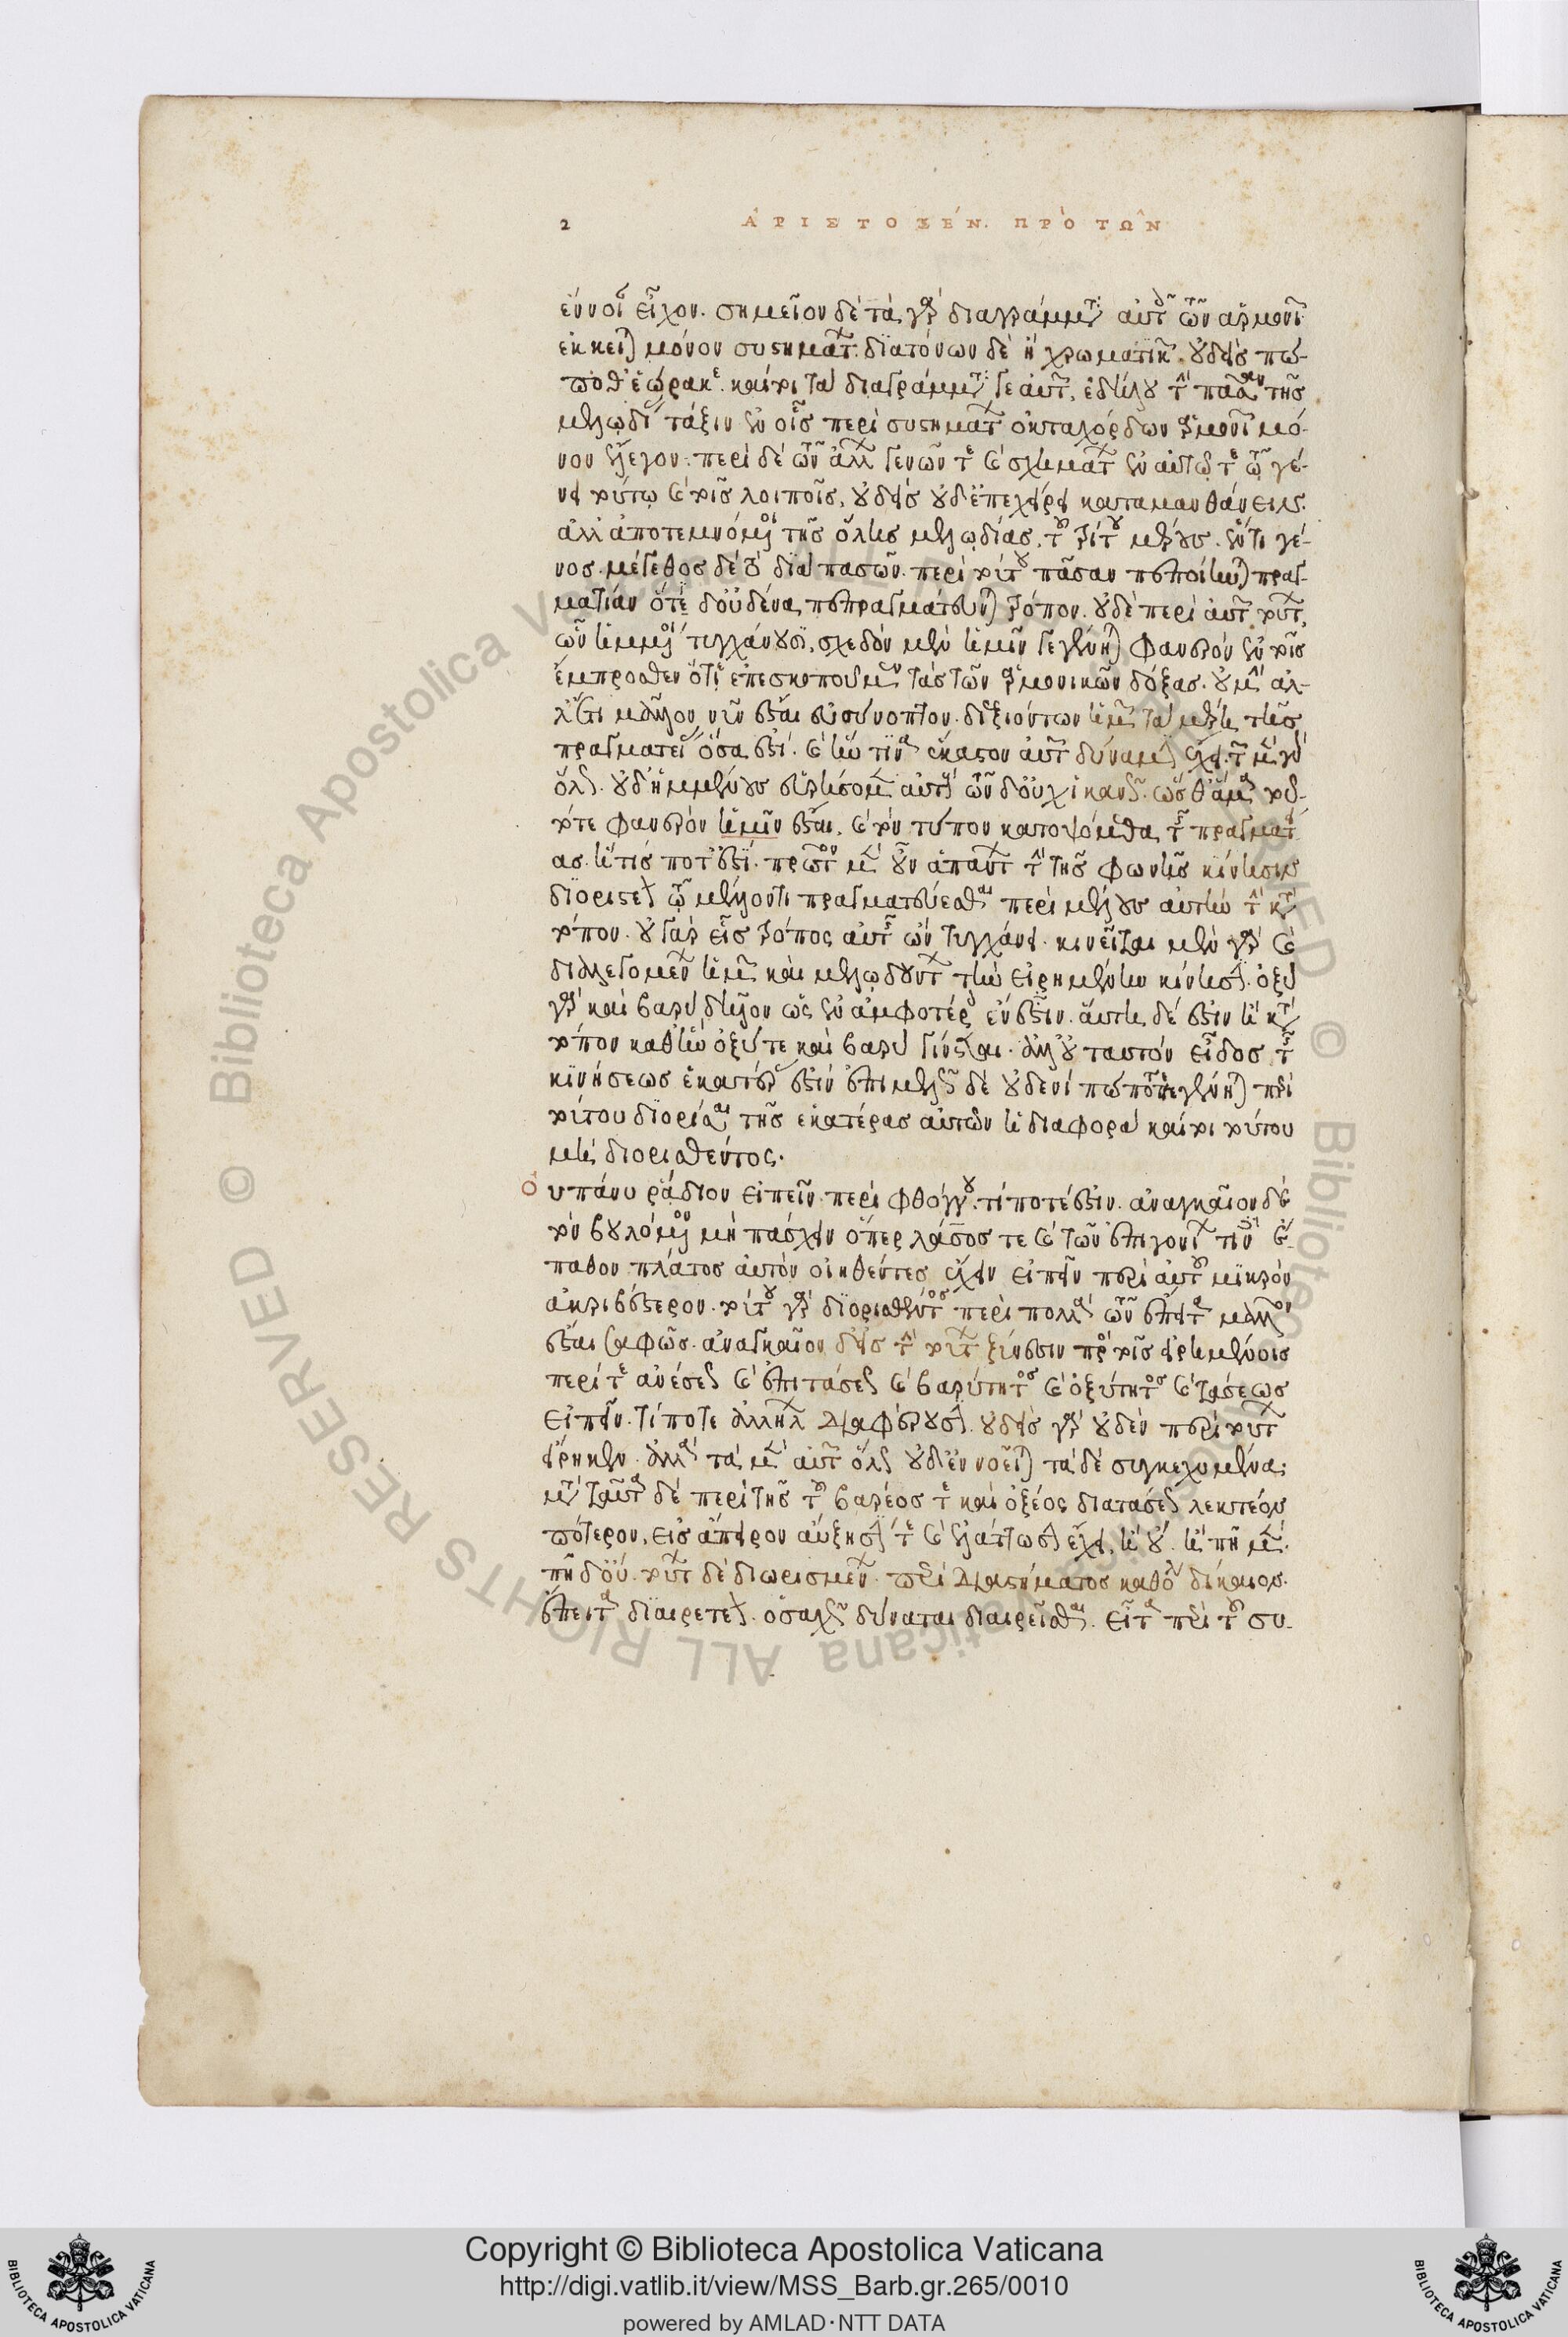 2 ἈΡΙΣΤΟΞΈΝ. ΠΡῸ ΤΩ͂Ν
εύνοϊ εἶχον. σημεῖον δὲ τὰ γὰρ διαγράμματα αὐτοῖς τῶν ἁρμονι
ἐκκειται μόνον συστημάτων. διατόνων δὲ ἢ χρωματικῶν. οὐδεὶς πώ-
ποθ' ἑώρακε. καίτοι τὰ διαγράμματα γε αὐτῶν, ἐδήλου τὴν πᾶσαν τῆς
μελῳδίας τάξιν ἐν οἷς περὶ συστημάτων ὀκταχόρδων ἁρμονι μό-
νον ἔλεγον. περὶ δὲ τῶν ἄλλων γενῶν τε καὶ σχημάτων ἐν αὐτῷ τε τῷ γέ-
νει τούτῳ καὶ τοῖς λοιποῖς, οὐδεὶς οὐδ' ἐπεχείρει καταμανθάνειν.
ἀλλ' ἀποτεμνόμενοι τῆς ὅλης μελῳδίας, τοῦ τρίτου μέρους. ἕν τι γέ-
νος. μέγεθος δὲ τὸ διὰ πασῶν. περὶ τούτου πᾶσαν πεποίηνται πραγ-
ματείαν ὅτι δ' οὐδένα πεπραγμάτευνται τρόπον. οὐδὲ περὶ αὐτῶν τούτων,
ὧν ἡμμένοι τυγχάνουσι, σχεδὸν μὲν ἡμῖν γεγένηται φανερὸν ἐν τοῖς
ἔμπροσθεν ὅτε ἐπεσκοποῦμεν τὰς τῶν ἁρμονικῶν δόξας. οὐ μὴν ἀλ-
λ' ἔτι μᾶλλον νῦν ἔσται εὐσύνοπτον. διεξιόντων ἡμῶν τὰ μέρη τῆς
πραγματείας ὅσα ἐστί. καὶ ἥν τινα ἕκαστον αὐτῶν δύναμιν ἔχει. τῶν μὲν γὰρ
ὅλως. οὐδ' ἡμμένους εὑρήσομεν αὐτοὺς τῶν δ' οὐχ ἱκανῶς. ὥσθ' ἅμα τοῦ-
τό τε φανερὸν ἡμῖν ἔσται, καὶ τὸν τύπον κατοψόμεθα τῆς πραγματεί
ας. ἥτις ποτ' ἐστί. πρῶτον μὲν οὖν ἁπάντων τὴν τῆς φωνῆς κίνησιν
διοριστέον τῷ μέλλοντι πραγματεύεσθαι περὶ μέλους αὐτὴν τὴν κατὰ
τόπον. οὐ γὰρ εἷς τρόπος αὐτῆς ὢν τυγχάνει. κινεῖται μὲν γὰρ καὶ
διαλεγομένων ἡμῶν καὶ μελῳδούντων τὴν εἰρημένην κίνησιν. ὀξὺ
γὰρ καὶ βαρὺ δῆλον ὡς ἐν ἀμφοτέροις ἔνεστιν. αὕτη δέ ἐστιν ἡ κατὰ
τόπον καθ' ἣν ὀξύ τε καὶ βαρὺ γίνεται. ἀλλ' οὐ ταυτὸν εἶδος τῆς
κινήσεως ἑκατέρας ἐστίν ἐπιμελῶς δὲ οὐδενί πώποτε γεγένηται περὶ
τούτου διορίσαι τῆς ἑκατέρας αὐτῶν ἡ διαφορὰ καίτοι τούτου
μὴ διορισθέντος.
Οὐ πάνυ ῥᾴδιον εἰπεῖν. περὶ φθόγγου. τί ποτέ ἐστιν. ἀναγκαῖον δὲ
τὸν βουλόμενον μὴ πάσχειν ὅπερ λᾶσός τε καὶ τῶν ἐπιγονείων τινὲς ἔ-
παθον πλάτος αὐτὸν οἰηθέντες ἔχειν εἰπεῖν περὶ αὐτοῦ μικρὸν
ἀκριβέστερον. τούτου γὰρ διορισθέντος περὶ πολλὰ τῶν ἔπειτα μᾶλλον
ἔσται σαφῶς. ἀναγκαῖον δ' εἰς τὴν τούτων ξύνεσιν πρὸς τοῖς εἰρημένοις
περί τε ἀνέσεως καὶ ἐπιτάσεως καὶ βαρύτητος καὶ ὀξύτητος καὶ τάσεως
εἰπεῖν. τί ποτε ἀλλήλων διαφέρουσιν. οὐδεὶς γὰρ οὐδὲν περὶ τούτων
εἴρηκεν. ἀλλὰ τὰ μὲν αὐτῶν ὅλως οὐδ' ἐννοεῖται τὰ δὲ συγκεχυμένα,
μετὰ ταῦτα δὲ περὶ τῆς τοῦ βαρέος τε καὶ ὀξέος διατάσεως λεκτέον
πότερον, εἰς ἄπειρον αὔξησίν τε καὶ ἐλάττωσιν ἔχει, ἢ οὔ. ἢ πῆ μὲν.
πῆ δ' οὔ. τούτων δὲ διωρισμένων. περὶ διαστήματος καθόλου δίκαιον.
ἔπειτα διαιρετέον. ὁσαχῶς δύναται διαιρεῖσθαι. εἶτα περὶ τοῦ συ-
Copyright © Biblioteca Apostolica Vaticana
http://digi.vatlib.it/view/MSS_Barb.gr.265/0010
powered by AMLAD·NTT DATA